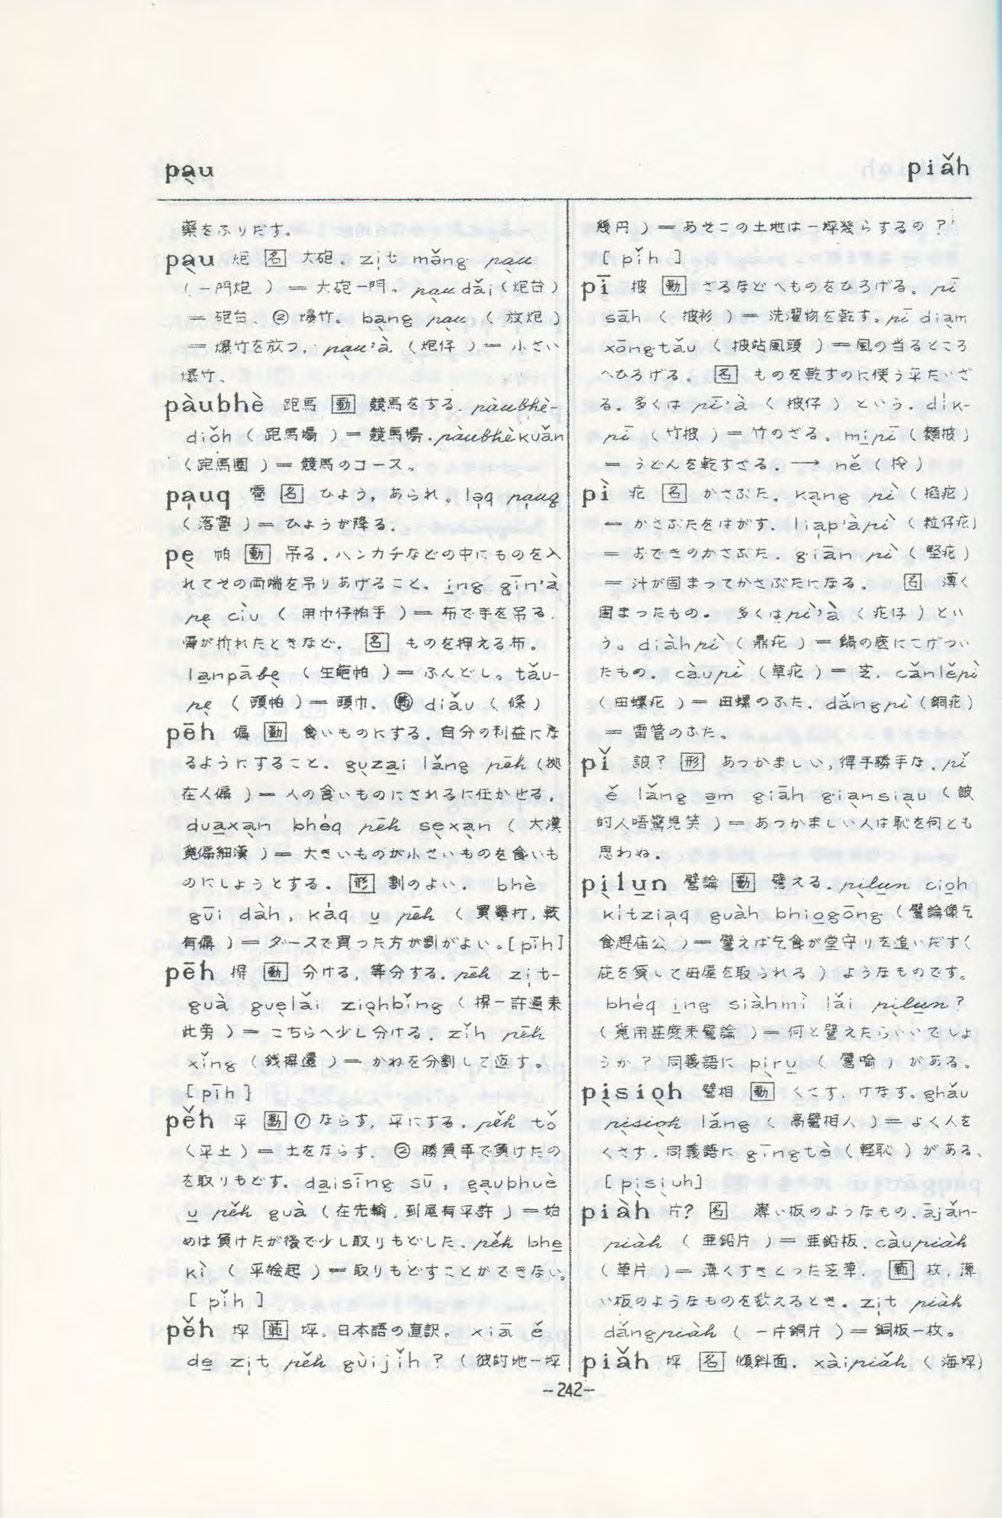 pa̱u
piǎh
薬をふりだす。
pa̤u 炮 名 大砲。zi̤t mǒng pa̤u
(一門炮)=大砲一門。pa̤u dǎi (炮台)
=砲台。② 爆竹。ba̤ng pa̤u (放炮)
=爆竹を放つ。pa̤u'à (炮仔)=小さい
爆竹、
pàubhè 跑馬 動 競馬をする. pàubhè-
diǒh (跑馬場)=競馬場. pàubhèkuǎn
(跑馬圈)=競馬のコース。
pa̤uq 雹 名 ひょう, あられ。lə̤q pa̤uq
(落雹)=ひょうが降る.
pe̤ 帕 動 吊る. ハンカチなどの中にものを入
れてその両端を吊りあげること、i̱ng gīn'à
pe̤ cìu (用巾仔帕手)=布で手を吊る.
骨が折れたときなど. 名 ものを押える布。
la̱npābe̤ (帕)=ふんどし。tǎu-
pe̤ (頭帕)=頭巾. diǎu (條)
pēh 偏 動 食いものにする. 自分の利益にな
るようにすること. gṳza̱i lǎng pēh (拠
在人偏)=人の食いものにされるに任かせる.
dua̱xa̤n bhéq pēh se̤xa̤n (大漢
覓偏細漢)=大きいものが小さいものを食いも
のにしようとする. 形 割のよい. bhè
gūi dàh, káq u̱ pēh (買打, 較
有偏)=ダースで買った方が割がよい。[pīh]
pēh 動 分ける, 等分する. pēh zi̤t-
guà gue̤lǎi zio̤hbǐng (一許過来
此旁)=こちらへ少し分ける. zǐh pēh
xǐng (銭還)=かねを分割して返す。
[pīh]
pěh 平 動 ① ならす, 平にする. pěh tǒ
(平土)=土をならす. ② 勝負事で負けたの
を取りもどす. da̱isīng sū, ga̤ubhuè
u̱ pěh guà (在先輸, 到尾有平許)=始
めは負けたが後で少し取りもどした. pěh bhe̱
kì (平起)=取りもどすことができない。
[pǐh]
pěh 坪 坪. 日本語の直訳. xiā ě
de̱ zi̤t pěh gùijǐh? (彼的地一坪
幾円)=あそこの土地は一坪幾らするの?
[pǐh]
pī 披 動 ざるなどへものをひろげる。pī
sāh (披衫)=洗濯物を乾す. pī dia̤m
xōngtǎu (披站風頭)=風の当るところ
へひろげる. 名 ものを乾すのに使う平たいざ
る. 多くは pī'à (披仔) という. dík-
pī (竹披)=竹のざる. mi̱pī (麺披)
=うどんを乾すざる. → ně
pì 疕 名 かさぶた. ka̤ng pì (疕)
=かさぶたをはがす. lia̤p'àpì (粒仔疕)
=おできのかさぶた. giān pì (堅疕)
=汁が固まってかさぶたになる. 名 薄く
固まったもの. 多くは pì'à (疕仔) とい
う。diàhpì (鼎疕)=鍋の底にこげつい
たもの. càupì (草疕)=芝. cǎnlěpì
(田螺疕)=田螺のふた. dǎngpì (銅疕)
=雷管のふた。
pǐ 形 あつかましい, 得手勝手な. pǐ
ě lǎng ə̱m giāh gia̤nsia̤u (
的人唔驚見笑)=あつかましい人は恥を何とも
思わぬ.
pi̤lu̱n 譬論 動 譬える. pi̤lu̱n cio̱h
kítzia̤q guàh bhio̱gōng (譬論像乞
食趕庙公)=譬えば乞食が堂守りを追いだす(
庇を貸して母屋を取られる)ようなものです。
bhéq i̱ng siàhmì lǎi pi̤lu̱n?
(覓用甚麼来譬論)=何と譬えたらいいでしょ
うか? 同義語に pi̤ru̱ (譬喩) がある。
pi̤sio̤h 譬相 動 くさす, けなす. ghǎu
pi̤sio̤h lǎng (高譬相人)=よく人を
くさす. 同義語に gīngtè (軽恥) がある。
[pi̤si̤uh]
piàh 片? 名 薄い板のようなもの. ājǎn-
piàh (亜鉛片)=亜鉛板. càupiàh
(草片)=薄くすきとった芝草. 枚, 薄
い板のようなものを数えるとき. zi̤t piàh
dǎngpiàh (一片銅片)=銅板一枚。
piǎh 坪 名 傾斜面. xàipiǎh (海坪)
-242-